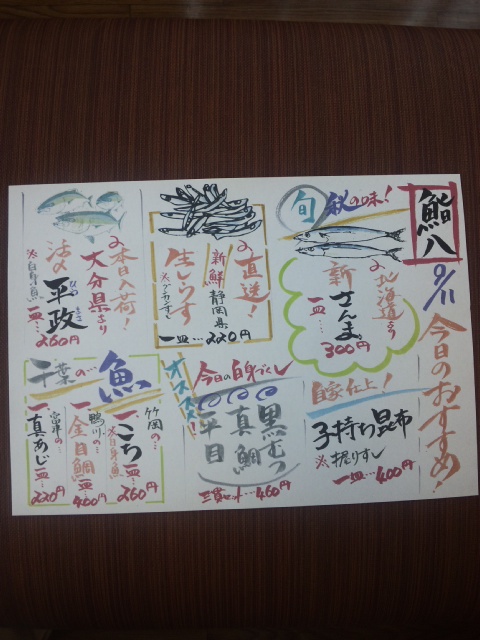 鮨八
9/11
今日のおすすめ!
旬
秋の味!
北海道より
新さんま。
一皿…300円
直送!
新鮮
静岡県
生しらす
一皿…220円
本日入荷!
大分県より
活〆
平政
ひらまさ
※白身魚
一皿…260円
自家仕上!
子持ち昆布
※握りずし
一皿…400円
オススメ!
今日の白身づくし
黒むつ
真鯛
平目
三貫セット…460円
千葉の
魚
竹岡の…
一、こち
※白身魚
一皿…260円
鴨川の…
一、金目鯛
一皿…400円
富津の…
一、真あじ
一皿…220円